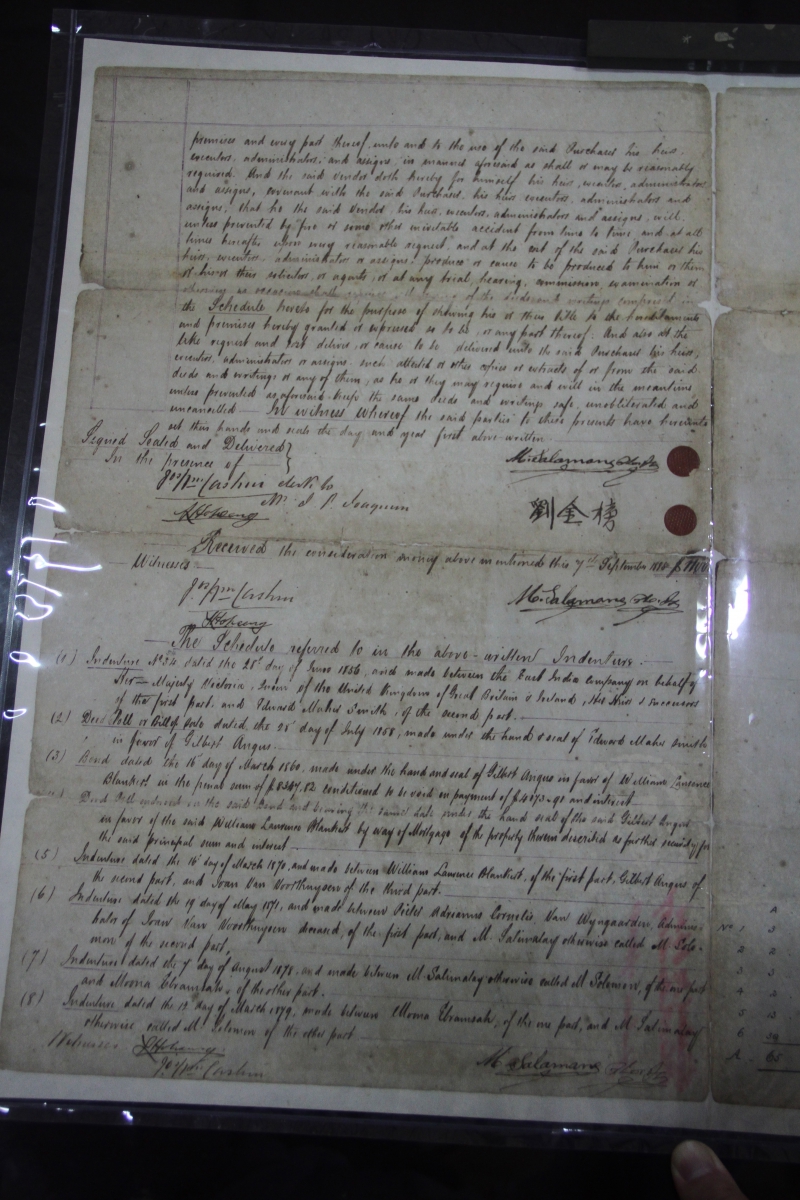 premises and every part thereof unto and to the use of the said Purchaser his heirs
executors, administrators, and assigns, in manner aforesaid as shall or may be reasonably
required. And the said Vendor doth hereby for himself, his heirs, executors, administrators
and assigns, covenant with the said Purchaser, his heirs executors, administrators and
assigns, that he the said Vendor his heirs, executors, administrators and assigns, will
unless prevented by fire or some other inevitable accident from time to time, and at all
times hereafter upon every reasonable request, and at the cost of the said Purchaser his
heirs, executors administrators or assigns, produce or cause to be produced to him or them
or his or their solicitors, or agents, or at any trial, hearing, commission, examination or
the Schedule hereto for the purpose of shewing his or their title to the hereditaments
and premises hereby granted or expressed so to be, or any part thereof. And also at the
like request and cost deliver, or cause to be delivered unto the said Purchaser his heirs,
executors, administrators or assigns such attested or other copies or extracts of or from the said
deeds and writings or any of them, as he or they may require and will in the meantime
unless prevented as aforesaid keep the same deeds and writings safe, unobliterated and
uncancelled In witness whereof the said parties to these presents have hereunto
set their hands and seals the day and year first above written
Signed Sealed and Delivered
In the presence of
Cashin
Mr. J. P. Joaquim
劉金榜
Received the consideration money above mentioned this 7th September
Witnesses
Cashin
The Schedule referred to in the above-written Indenture.
(1) Indenture No 54 dated the 25th day of June 1856, and made between the East India Company on behalf of
Her Majesty Victoria, Queen of the United Kingdom of Great Britain & Ireland, Her Heirs & successors
of the first part, and Edward Maher Smith, of the second part.
(2) Deed Poll or Bill of Sale dated the 28 day of July 1858, made under the hand & seal of Edward Maher Smith
in favor of Gilbert Angus.
(3) Bond dated the 16 day of March 1860, made under the hand and seal of Gilbert Angus in favor of William Lawrence
in the penal sum of conditioned to be void on payment of and interest
Deed Poll in the said Bond and bearing the same date under the hand seal of the said Gilbert Angus
in favor of the said William Lawrence by way of Mortgage of the property therein described as further security for
the said principal sum and interest
(5) Indenture dated the 16 day of March 1870, and made between William Lawrence of the first part, Gilbert Angus of
the second part, and Joan Van of the third part.
(6) Indenture dated the 19 day of May 1871, and made between Pieter Adrianus Cornelis Van Wyngaarden, Adminis-
trator of Joan Van deceased, of the first part, and M. otherwise called M. Solo-
mon of the second part,
(7) Indenture dated the 7 day of August 1878 and made between M otherwise called M Solomon, of the one part
and Moona of the other part.
(8) Indenture dated the 13 day of March 1879, made between Moona of the one part, and M.
otherwise called M Solomon of the other part
Witnesses
Cashin
A
No 1 3
2 2
3 3
4 2
5 13
6
A. 65